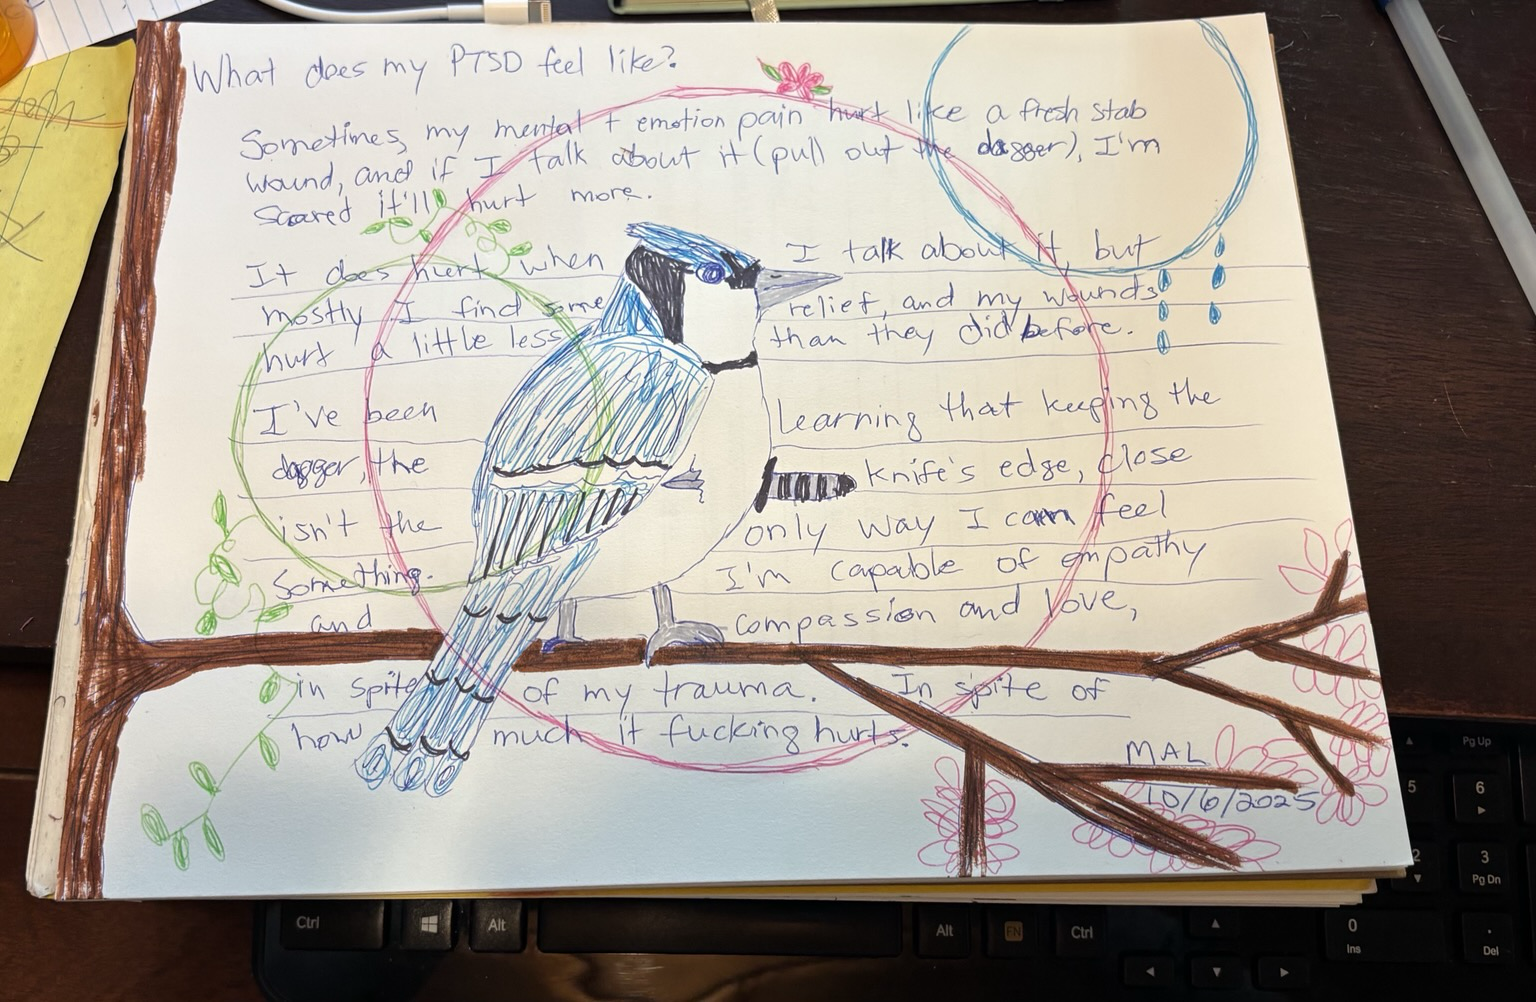 What does my PTSD feel like?
Sometimes, my mental + emotion pain hurt like a fresh stab
wound, and if I talk about it (pull out the dagger), I'm
scared it'll hurt more.
It does hurt when I talk about it, but
mostly I find some relief, and my wounds
hurt a little less than they did before.
I've been learning that keeping the
dagger, the knife's edge, close
isn't the only way I can feel
something. I'm capable of empathy
and compassion and love,
in spite of my trauma. In spite of
how much it fucking hurts.
MAL
10/6/2025
Pg Up
5
6
2
3
Pg Dn
Ctrl
Alt
Alt
FN
Ctrl
0
Ins
.
Del